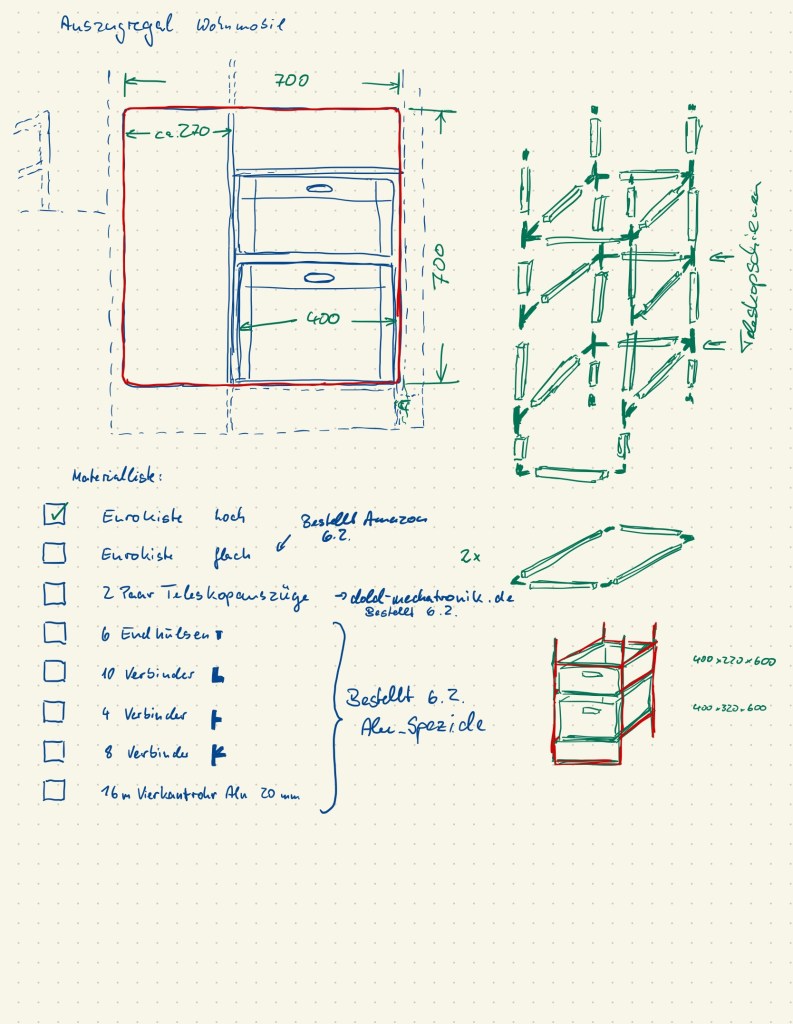 Auszugregal Wohnmobil
700
ca. 270
700
400
Teleskopschienen
Materialliste:
Eurokiste hoch
Bestellt Amazon
6.2.
Eurokiste flach
2x
2 Paar Teleskopauszüge → dold-mechatronik.de
Bestellt 6.2.
6 Endhülsen
10 Verbinder
4 Verbinder
8 Verbinder
16m Vierkantrohr Alu 20 mm
Bestellt 6.2.
Alu-Spezi.de
400x220x600
400x320x600